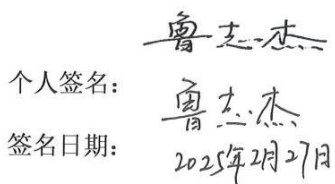 鲁志杰
个人签名： 鲁志杰
签名日期： 2025年2月27日